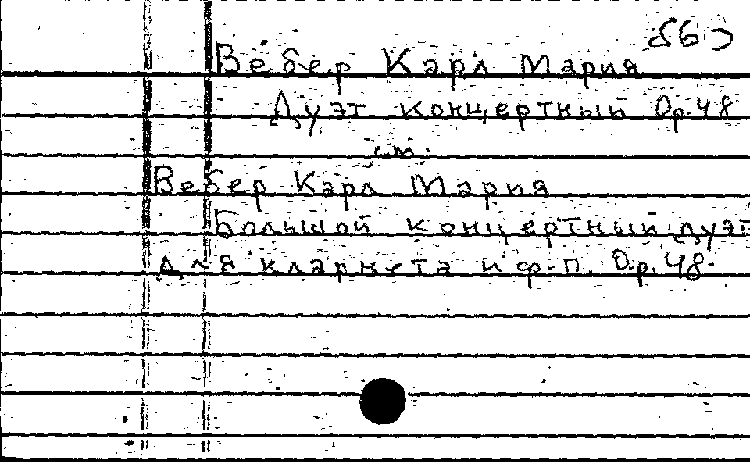 Вебер Карл Мария
Дуэт концертный Op. 48
см.
Вебер Карл Мария
Большой концертный дуэт
для кларнета и ф-п. Op. 48.